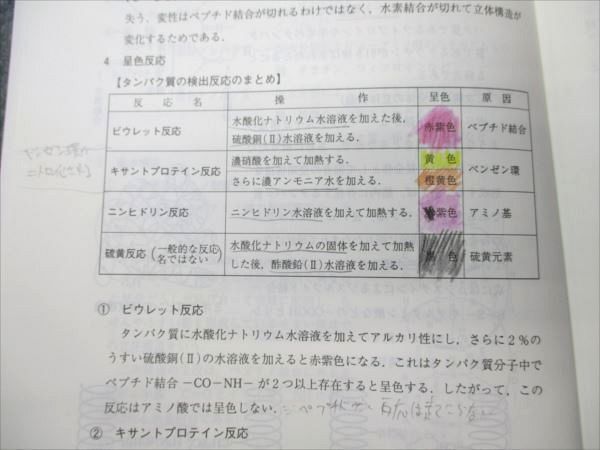 失う．変性はペプチド結合が切れるわけではなく，水素結合が切れて立体構造が
変化するためである．
4 呈色反応
【タンパク質の検出反応のまとめ】
反応名 操作 呈色 原因
ビウレット反応 水酸化ナトリウム水溶液を加えた後，
硫酸銅(Ⅱ)水溶液を加える． 赤紫色 ペプチド結合
キサントプロテイン反応 濃硝酸を加えて加熱する． 黄色 ベンゼン環
さらに濃アンモニア水を加える． 橙黄色
ニンヒドリン反応 ニンヒドリン水溶液を加えて加熱する． 紫色 アミノ基
硫黄反応 (一般的な反応名ではない) 水酸化ナトリウムの固体を加えて加熱
した後，酢酸鉛(Ⅱ)水溶液を加える． 黒色 硫黄元素
ベンゼン環が
ニトロ化される
① ビウレット反応
タンパク質に水酸化ナトリウム水溶液を加えてアルカリ性にし，さらに2％の
うすい硫酸銅(Ⅱ)の水溶液を加えると赤紫色になる．これはタンパク質分子中で
ペプチド結合 －CO－NH－ が2つ以上存在すると呈色する．したがって，この
反応はアミノ酸では呈色しない．
② キサントプロテイン反応